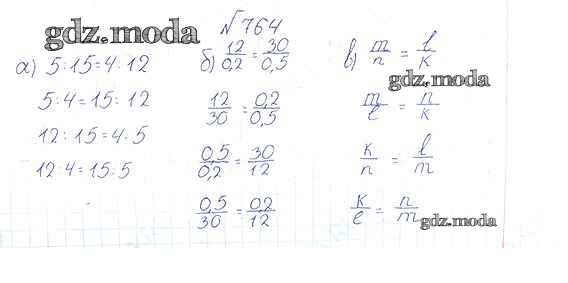 №764
gdz.moda
а) 5:15=4:12
5:4=15:12
12:15=4:5
12:4=15:5
б) 12/0,2 = 30/0,5
12/30 = 0,2/0,5
0,5/0,2 = 30/12
0,5/30 = 0,2/12
в) m/n = l/k
gdz.moda
m/l = n/k
k/n = l/m
k/l = n/m
gdz.moda